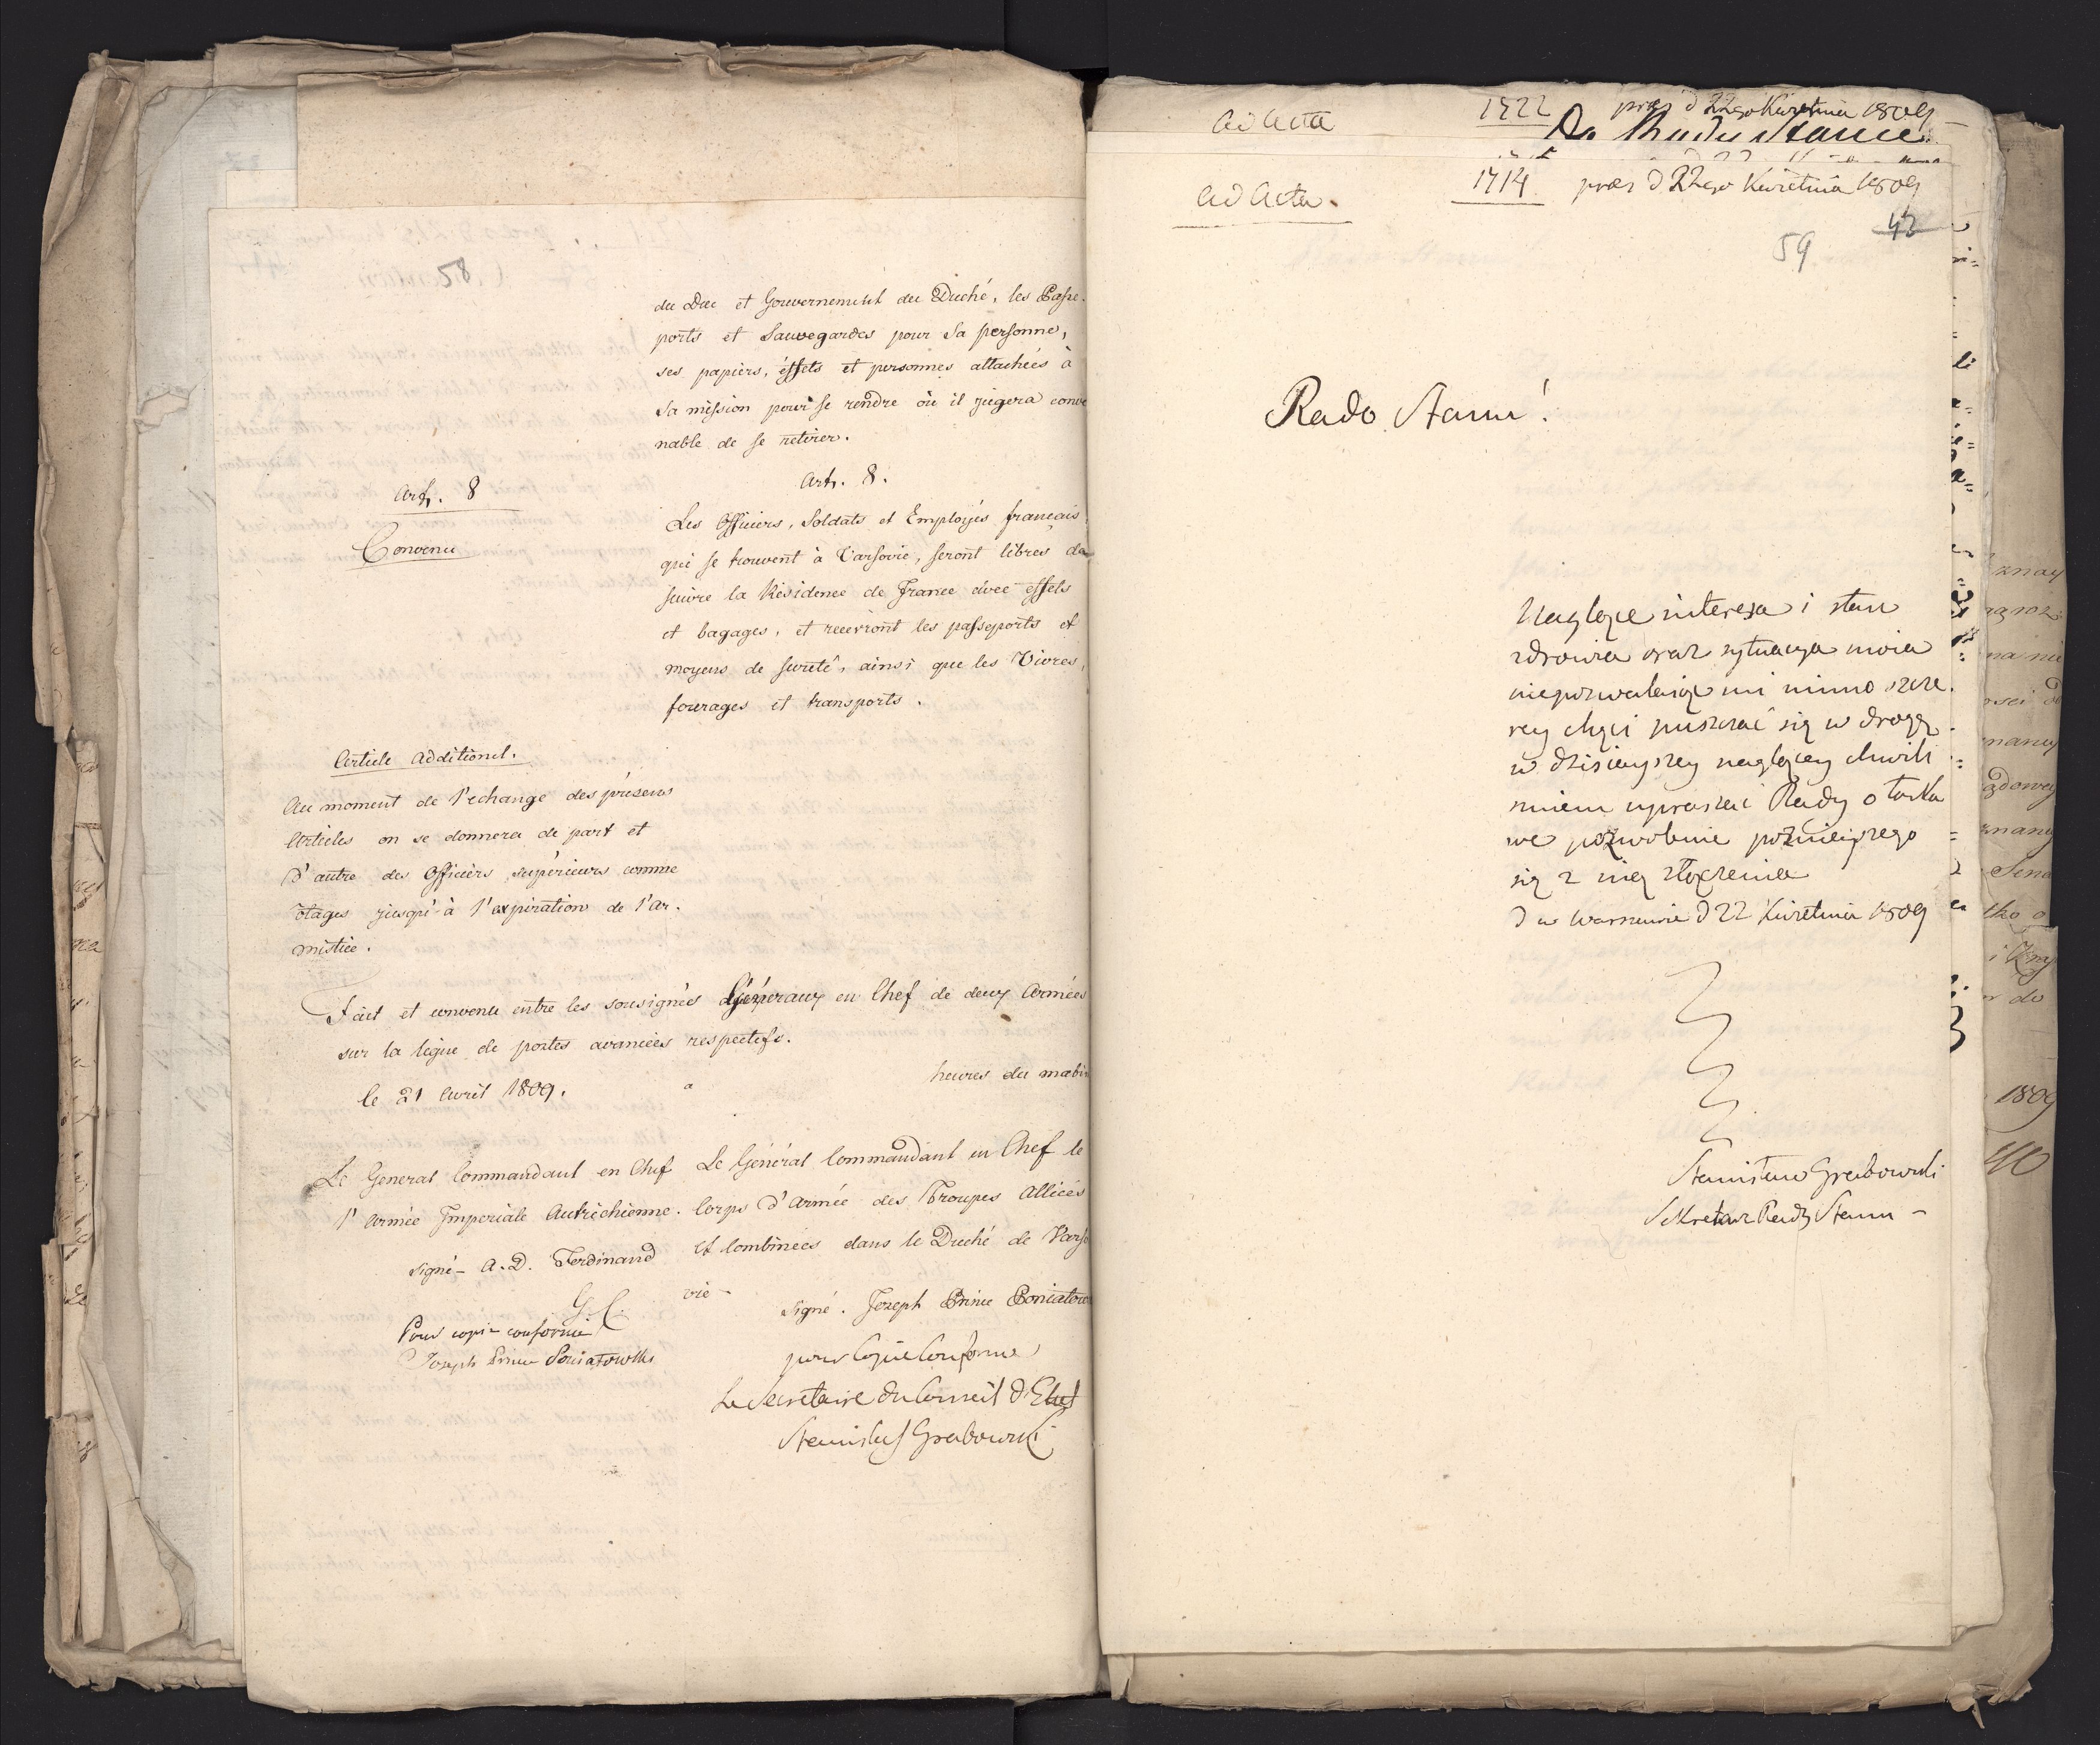 58
du Duc et Gouvernement du Duché, les Passe-
ports et Sauvegardes pour Sa personne,
ses papiers, éffets et personnes attachées à
Sa mission pour se rendre où il jugera conve
nable de se retirer.
Art. 8
Convenu
Art. 8.
Les Officiers, Soldats et Employés francais,
qui se trouvent à Varsovie, seront libres de
suivre la Residence de France avec effets
et bagages, et recevront les passeports et
moyens de sureté, ainsi que les Vivres,
fourages et transports.
Article Additionel.
Au moment de l'echange des présens
Articles on se donnera de part et
d'autre des Officiers supérieurs comme
otages jusqu'à l'expiration de l'ar-
mistice.
Fait et convenu entre les sousignés Généraux en Chef de deux Armées
sur la ligne de postes avancées respectifs.
le 21 Avril 1809. a heures du matin
Le General Commandant en Chef
l'armée Imperiale Autrichienne.
signé - A. D. Ferdinand
G. C.
Pour copie conforme
Joseph Prince Poniatowski
Le Général Commandant en Chef le
Corps d'armée des Troupes Alliées
et Combinées dans le Duché de Varso
vie -
signé. Joseph Prince Poniatow
pour Copie Conforme
Le Secretaire du Conseil d'Etat
Stanislas Grabowski
ad acta
1722
præs d 22go Kwietnia 1809
Do Rady Stanu
ad Acta.
1714
præs d 22go Kwietnia 1809
42
59
Rado Stanu!
Naglące interesa i stan
zdrowia oraz sytuacya moia
niepozwalaią mi mimo szcze
rey chęci puszczać się w drogę
w dzisieyszey naglącey chwili
smiem upraszać Rady o łaska
we pozwolenie poznieyszego
się z nią złączenia
d w Warszawie d 22 Kwietnia 1809
Stanisław Grabowski
Sekretarz Rady Stanu -
1809